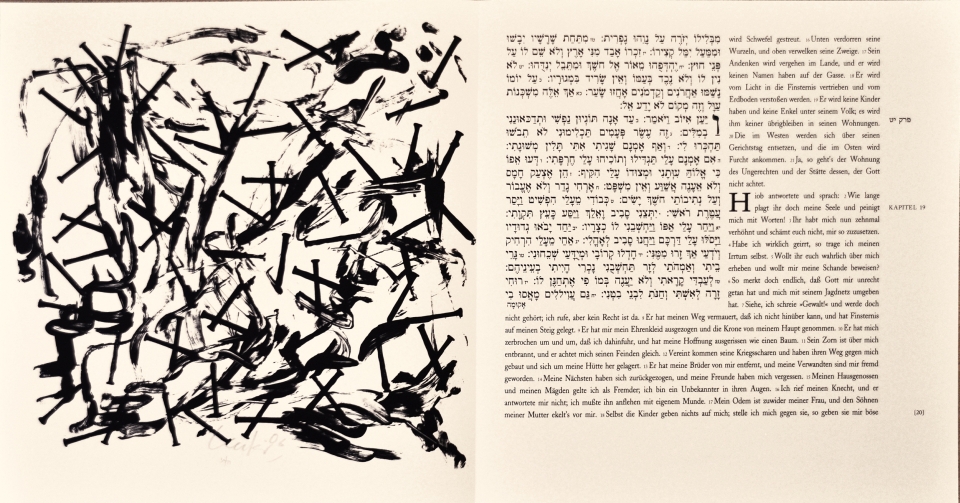 מִבְּלִי לוֹ יְזֹרֶה עַל נָוֵהוּ גָפְרִית: טז מִתַּחַת שָׁרָשָׁיו יִבָשׁוּ
וּמִמַּעַל יִמַּל קְצִירוֹ: יז זִכְרוֹ אָבַד מִנִּי אָרֶץ וְלֹא שֵׁם לוֹ עַל
פְּנֵי חוּץ: יח יֶהְדְּפֻהוּ מֵאוֹר אֶל חֹשֶׁךְ וּמִתֵּבֵל יְנִדֻּהוּ: יט לֹא
נִין לוֹ וְלֹא נֶכֶד בְּעַמּוֹ וְאֵין שָׂרִיד בִּמְגוּרָיו: כ עַל יוֹמוֹ
נָשַׁמּוּ אַחֲרֹנִים וְקַדְמֹנִים אָחֲזוּ שָׂעַר: כא אַךְ אֵלֶּה מִשְׁכְּנוֹת
עַוָּל וְזֶה מְקוֹם לֹא יָדַע אֵל:
וַיַּעַן אִיּוֹב וַיֹּאמַר: ב עַד אָנָה תּוֹגְיוּן נַפְשִׁי וּתְדַכְּאוּנַנִי
בְמִלִּים: ג זֶה עֶשֶׂר פְּעָמִים תַּכְלִימוּנִי לֹא תֵבֹשׁוּ
תַּהְכְּרוּ לִי: ד וְאַף אָמְנָם שָׁגִיתִי אִתִּי תָּלִין מְשׁוּגָתִי:
ה אִם אָמְנָם עָלַי תַּגְדִּילוּ וְתוֹכִיחוּ עָלַי חֶרְפָּתִי: ו דְּעוּ אֵפוֹ
כִּי אֱלוֹהַּ עִוְּתָנִי וּמְצוּדוֹ עָלַי הִקִּיף: ז הֵן אֶצְעַק חָמָס
וְלֹא אֵעָנֶה אֲשַׁוַּע וְאֵין מִשְׁפָּט: ח אָרְחִי גָדַר וְלֹא אֶעֱבוֹר
וְעַל נְתִיבוֹתַי חֹשֶׁךְ יָשִׂים: ט כְּבוֹדִי מֵעָלַי הִפְשִׁיט וַיָּסַר
עֲטֶרֶת רֹאשִׁי: י יִתְּצֵנִי סָבִיב וָאֵלַךְ וַיַּסַּע כָּעֵץ תִּקְוָתִי:
יא וַיַּחַר עָלַי אַפּוֹ וַיַּחְשְׁבֵנִי לוֹ כְצָרָיו: יב יַחַד יָבֹאוּ גְדוּדָיו
וַיָּסֹלּוּ עָלַי דַּרְכָּם וַיַּחֲנוּ סָבִיב לְאָהֳלִי: יג אַחַי מֵעָלַי הִרְחִיק
וְיֹדְעַי אַךְ זָרוּ מִמֶּנִּי: יד חָדְלוּ קְרוֹבָי וּמְיֻדָּעַי שְׁכֵחוּנִי: טו גָּרֵי
בֵיתִי וְאַמְהֹתַי לְזָר תַּחְשְׁבֻנִי נָכְרִי הָיִיתִי בְעֵינֵיהֶם:
טז לְעַבְדִּי קָרָאתִי וְלֹא יַעֲנֶה בְּמוֹ פִי אֶתְחַנֶּן לוֹ: יז רוּחִי
זָרָה לְאִשְׁתִּי וְחַנֹּתִי לִבְנֵי בִטְנִי: יח גַּם עֲוִילִים מָאֲסוּ בִי
אָקוּמָה
פרק יט
wird Schwefel gestreut. 16 Unten verdorren seine
Wurzeln, und oben verwelken seine Zweige. 17 Sein
Andenken wird vergehen im Lande, und er wird
keinen Namen haben auf der Gasse. 18 Er wird
vom Licht in die Finsternis vertrieben und vom
Erdboden verstoßen werden. 19 Er wird keine Kinder
haben und keine Enkel unter seinem Volk; es wird
ihm keiner übrigbleiben in seinen Wohnungen.
20 Die im Westen werden sich über seinen
Gerichtstag entsetzen, und die im Osten wird
Furcht ankommen. 21 Ja, so geht's der Wohnung
des Ungerechten und der Stätte dessen, der Gott
nicht achtet.
Hiob antwortete und sprach: 2 Wie lange
plagt ihr doch meine Seele und peinigt
mich mit Worten! 3 Ihr habt mich nun zehnmal
verhöhnt und schämt euch nicht, mir so zuzusetzen.
4 Habe ich wirklich geirrt, so trage ich meinen
Irrtum selbst. 5 Wollt ihr euch wahrlich über mich
erheben und wollt mir meine Schande beweisen?
6 So merkt doch endlich, daß Gott mir unrecht
getan hat und mich mit seinem Jagdnetz umgeben
hat. 7 Siehe, ich schreie »Gewalt!« und werde doch
KAPITEL 19
nicht gehört; ich rufe, aber kein Recht ist da. 8 Er hat meinen Weg vermauert, daß ich nicht hinüber kann, und hat Finsternis
auf meinen Steig gelegt. 9 Er hat mir mein Ehrenkleid ausgezogen und die Krone von meinem Haupt genommen. 10 Er hat mich
zerbrochen um und um, daß ich dahinfuhr, und hat meine Hoffnung ausgerissen wie einen Baum. 11 Sein Zorn ist über mich
entbrannt, und er achtet mich seinen Feinden gleich. 12 Vereint kommen seine Kriegsscharen und haben ihren Weg gegen mich
gebaut und sich um meine Hütte her gelagert. 13 Er hat meine Brüder von mir entfernt, und meine Verwandten sind mir fremd
geworden. 14 Meine Nächsten haben sich zurückgezogen, und meine Freunde haben mich vergessen. 15 Meinen Hausgenossen
und meinen Mägden gelte ich als Fremder; ich bin ein Unbekannter in ihren Augen. 16 Ich rief meinen Knecht, und er
antwortete mir nicht; ich mußte ihn anflehen mit eigenem Munde. 17 Mein Odem ist zuwider meiner Frau, und den Söhnen
meiner Mutter ekelt's vor mir. 18 Selbst die Kinder geben nichts auf mich; stelle ich mich gegen sie, so geben sie mir böse
[20]